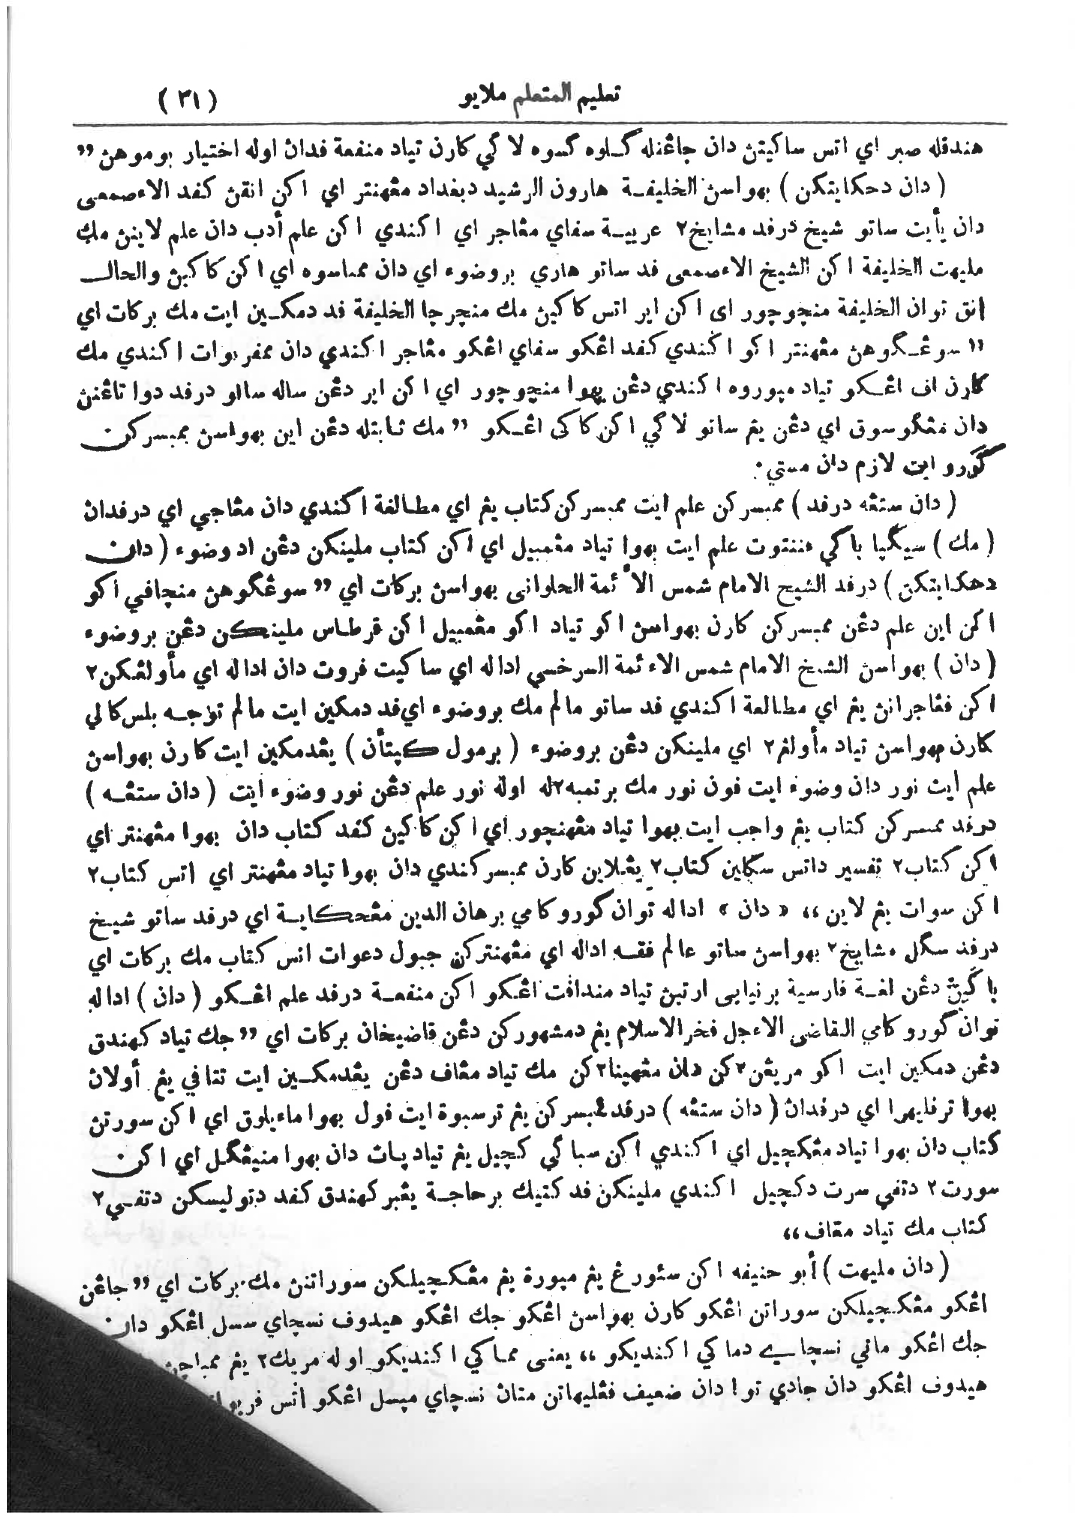 تعليم المتعلم ملايو
( ٣١ )
هندقله صبر اي اتس ساكيتن دان جاڠنله ݢلوه ݢسوه لاݢي كارن تياد منفعة فدان اوله اختيار بوموهن "
( دان دحكايتكن ) بهواسن الخليفة هارون الرشيد دبغداد مڠهنتر اي اكن انقن كفد الاءصمعى
دان يأيت ساتو شيخ درفد مشايخ٢ عربية سفاي مڠاجر اي اكندي اكن علم أدب دان علم لاينن مك
مليهت الخليفة اكن الشيخ الاءصمعى فد ساتو هاري بروضوء اي دان ممباسوه اي اكن كاكين والحال
انق توان الخليفة منچوچور اى اكن اير اتس كاكين مك منچرچا الخليفة فد دمكين ايت مك بركات اي
" سوڠݢوهن مڠهنتر اكو اكندي كفد اڠكو سفاي اڠكو مڠاجر اكندي دان ممفربوات اكندي مك
كارن اف اڠكو تياد مپوروه اكندي دڠن بهوا منچوچور اي اكن اير دڠن ساله ساتو درفد دوا تاڠنن
دان مڠݢوسوق اي دڠن يڠ ساتو لاݢي اكن كاكى اڠكو " مك ثابتله دڠن اين بهواسن ممبسركن
ݢورو ايت لازم دان مستي.
( دان ستڠه درفد ) ممبسركن علم ايت ممبسركن كتاب يڠ اي مطالعة اكندي دان مڠاجي اي درفدان
( مك ) سيݢيا باݢي مننتوت علم ايت بهوا تياد مڠمبيل اي اكن كتاب ملينكن دڠن اد وضوء ( دان
دحكايتكن ) درفد الشيخ الامام شمس الأئمة الحلوانى بهواسن بركات اي " سوڠݢوهن منچافي اكو
اكن اين علم دڠن ممبسركن كارن بهواسن اكو تياد اكو مڠمبيل اكن قرطاس ملينكن دڠن بروضوء
( دان ) بهواسن الشيخ الامام شمس الاءئمة السرخسي اداله اي ساكيت فروت دان اداله اي مأولڠكن٢
اكن فڠاجرانن يڠ اي مطالعة اكندي فد ساتو مالم مك بروضوء اي فد دمكين ايت مالم توجه بلس كالي
كارن بهواسن تياد مأولڠ٢ اي ملينكن دڠن بروضوء ( برمول كڽتأن ) يڠدمكين ايت كارن بهواسن
علم ايت نور دان وضوء ايت فون نور مك برتمبه٢له اوله نور علم دڠن نور وضوء ايت ( دان ستڠه )
درفد ممبسركن كتاب يڠ واجب ايت بهوا تياد مڠهنچور اي اكن كاكين كفد كتاب دان بهوا مڠهنتر اي
اكن كتاب٢ تفسير داتس سكلين كتاب٢ يڠلاين كارن ممبسركندي دان بهوا تياد مڠهنتر اي اتس كتاب٢
اكن سوات يڠ لاين ،، « دان » اداله توان ݢوروكامي برهان الدين مڠحكاية اي درفد ساتو شيخ
درفد سݢل مشايخ٢ بهواسن ساتو عالم فقه اداله اي مڠهنتركن جبول دعوات اتس كتاب مك بركات اي
باݢيڽ دڠن لغة فارسية برنيابى ارتين تياد مندافت اڠكو اكن منفعة درفد علم اڠكو ( دان ) اداله
توان ݢوروكامي القاضى الاءجل فخر الاسلام يڠ دمشهوركن دڠن قاضيخان بركات اي " جك تياد كهندق
دڠن دمكين ايت اكو مريڠن٢كن دان مڠهينا٢كن مك تياد مڠاف دڠن يڠدمكين ايت تتافي يڠ أولان
بهوا ترفليهرا اي درفدان ( دان ستڠه ) درفد ممبسركن يڠ ترسبوة ايت فول بهوا ماءيلوق اي اكن سورتن
كتاب دان بهوا تياد مڠكچيل اي اكندي اكن سباݢي كچيل يڠ تياد پات دان بهوا منيڠݢل اي اكن
سورت٢ دتفي سرت دكچيل اكندي ملينكن فد كتيك برحاجة يڠبر كهندق كفد دتوليسكن دتفي٢
كتاب مك تياد مڠاف ،،
( دان مليهت ) أبو حنيفه اكن سئورڠ يڠ مپورة يڠ مڠكچيلكن سوراتنن مك بركات اي " جاڠن
اڠكو مڠكچيلكن سوراتن اڠكو كارن بهواسن اڠكو جك اڠكو هيدوف نسچاي سسل اڠكو دان
جك اڠكو ماتي نسچاي دماكي اكنديكو ،، يعنى مماكي اكنديكو اوله مريك٢ يڠ ممباچ
هيدوف اڠكو دان جادي توا دان ضعيف فڠليهاتن متان نسچاي مپسل اڠكو اتس